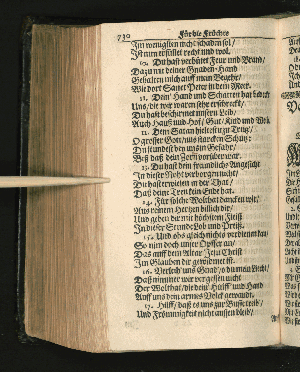 730 Für die Früchte
Im wenigsten nicht schaden sol/
Ist nun erfüllet recht und wol.
10. Du hast verhütet Feur und Brand/
Dazu mit deiner Gnaden-Hand
Gehalten mich auff mein Begehr/
Wie dort Sanct Peter in dem Meer.
11. Dein Hand und Scharten hat bedeckt
Uns/ die wir waren sehr erschreckt/
Du hast beschirmet unsern Leib/
Auch Hauß und Hof/ Gut/ Kind und Weib
12. Dem Satan hielts zu Trutz/
O grosser Gott/ nur starcken Schutz:
Du stundest bey uns in Gefahr/
Biß daß dein Zorn vorüber war.
13. Du hast dein freundlichs Angesicht
In dieser Noht verborgen nicht/
Du hast erwiesen in der That/
Daß deine Treu kein Ende hat.
14. Für solche Wolthat dancken wir/
Aus reinem Hertzen billich dir/
Und geben dir mit höchstem Fleiß
In dieser Stunde Lob und Preiß.
15. Und obs gleich nichts verdienet
So nim doch unser Opffer an/
Das auff dem Altar Jesu Christ
Im Glauben dir gewidmet ist.
16. Verleih' uns Gnad/ o du mein Liecht/
Daß nimmer wir vergessen nicht
Der Wolthat/ die dein' Hülff' und Hand
Auff uns dein armes Volck gewandt.
17. Hilff/ daß es uns zur Busse treib/
Und Frömmigkeit nicht aussen bleib/